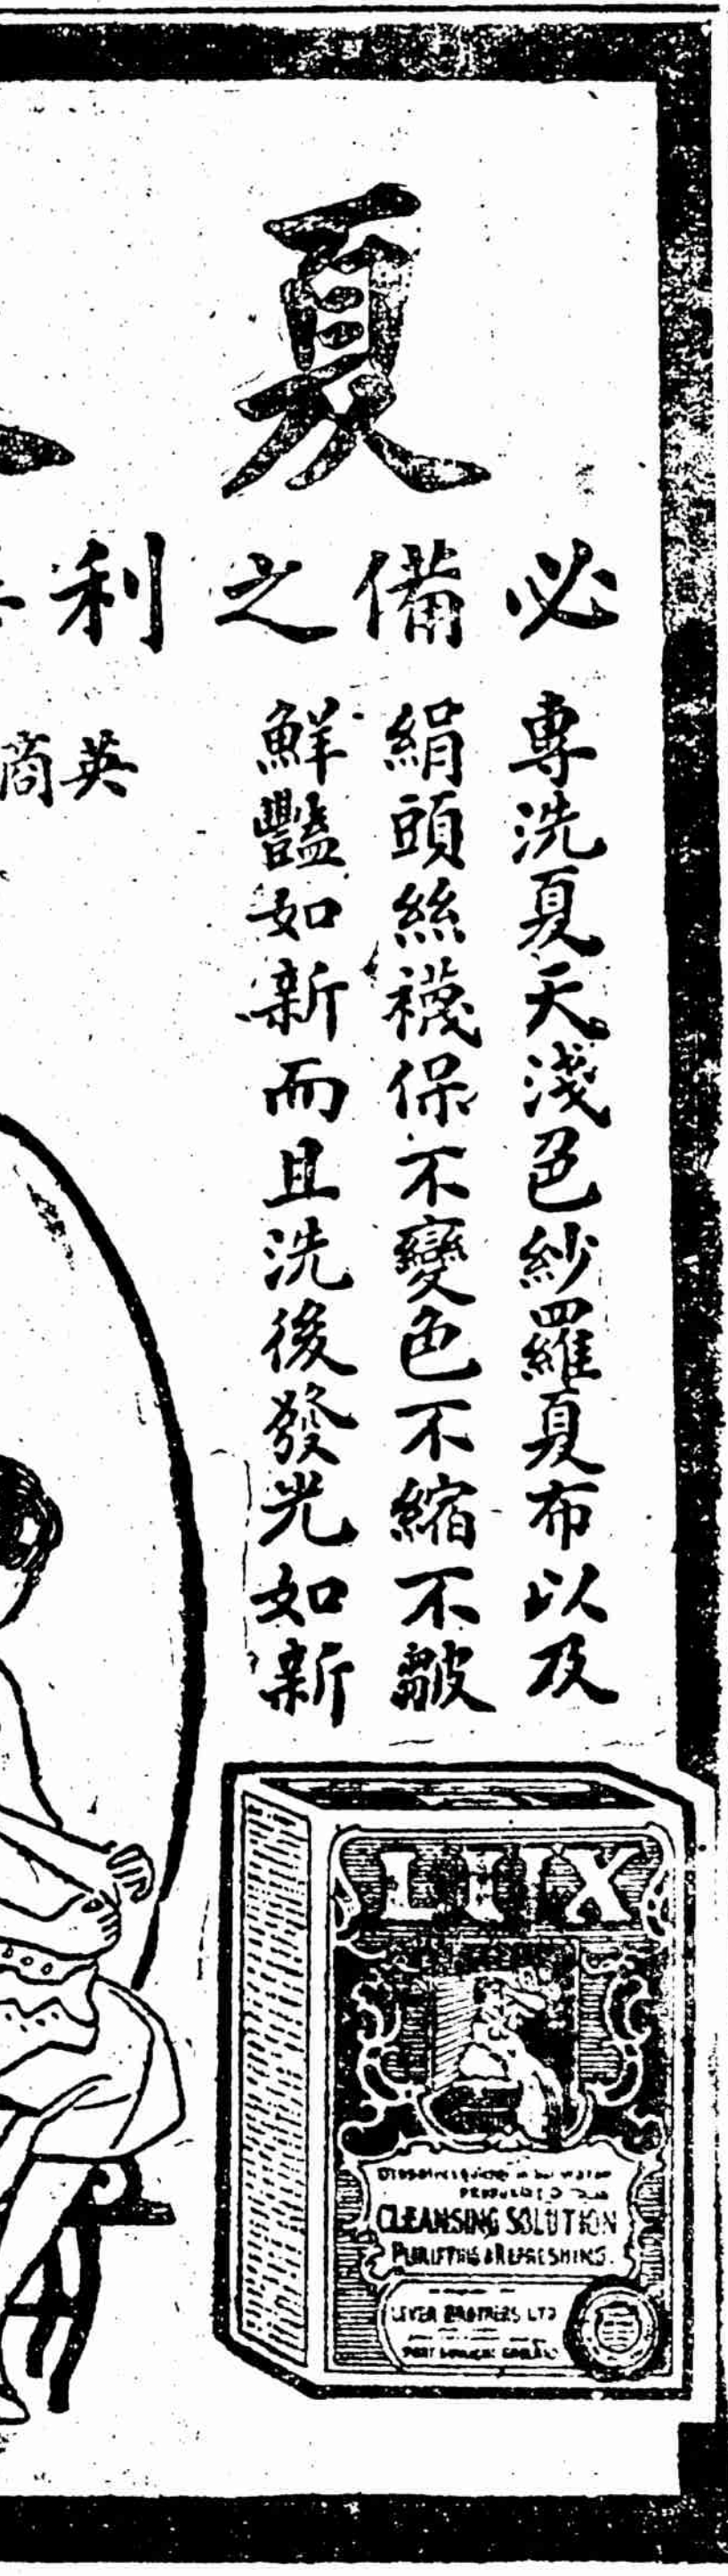 夏
必備之利
專洗夏天淺色紗羅夏布以及
絹頭絲襪保不變色不縮不皺
鮮豔如新而且洗後發光如新
英商
LUX
CLEANSING SOLUTION
PURIFYING & REFRESHING.
LEVER BROTHERS LTD